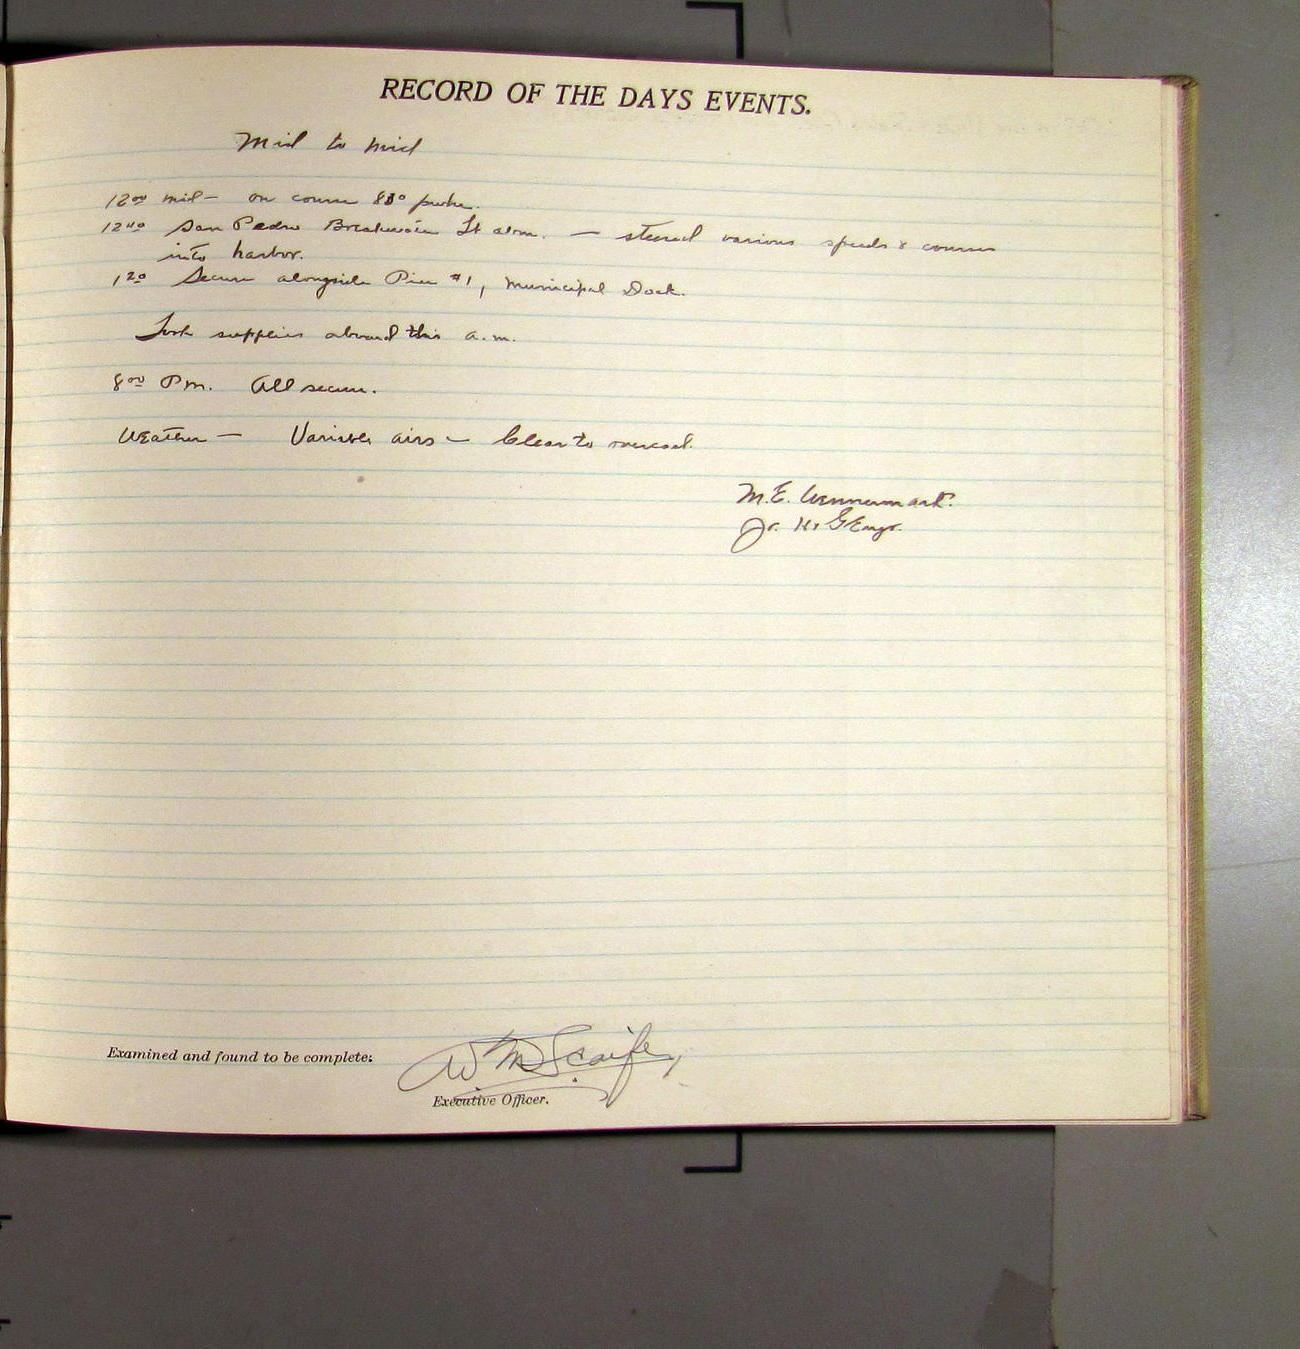 RECORD OF THE DAYS EVENTS.
Mid to Mid
12⁰⁰ mid — on course 83° p.s.c.
12⁴⁰ San Pedro Breakwater Lt abm. — steered various speeds & courses
into harbor.
1²⁰ Secure alongside Pier #1, Municipal Dock.
Took supplies aboard this a.m.
8⁰⁰ P.m. All secure.
Weather — Variable airs — Clear to overcast.
M.E. Wennermark.
Jr. H & G Engr.
Examined and found to be complete:
W M Scaife,
Executive Officer.